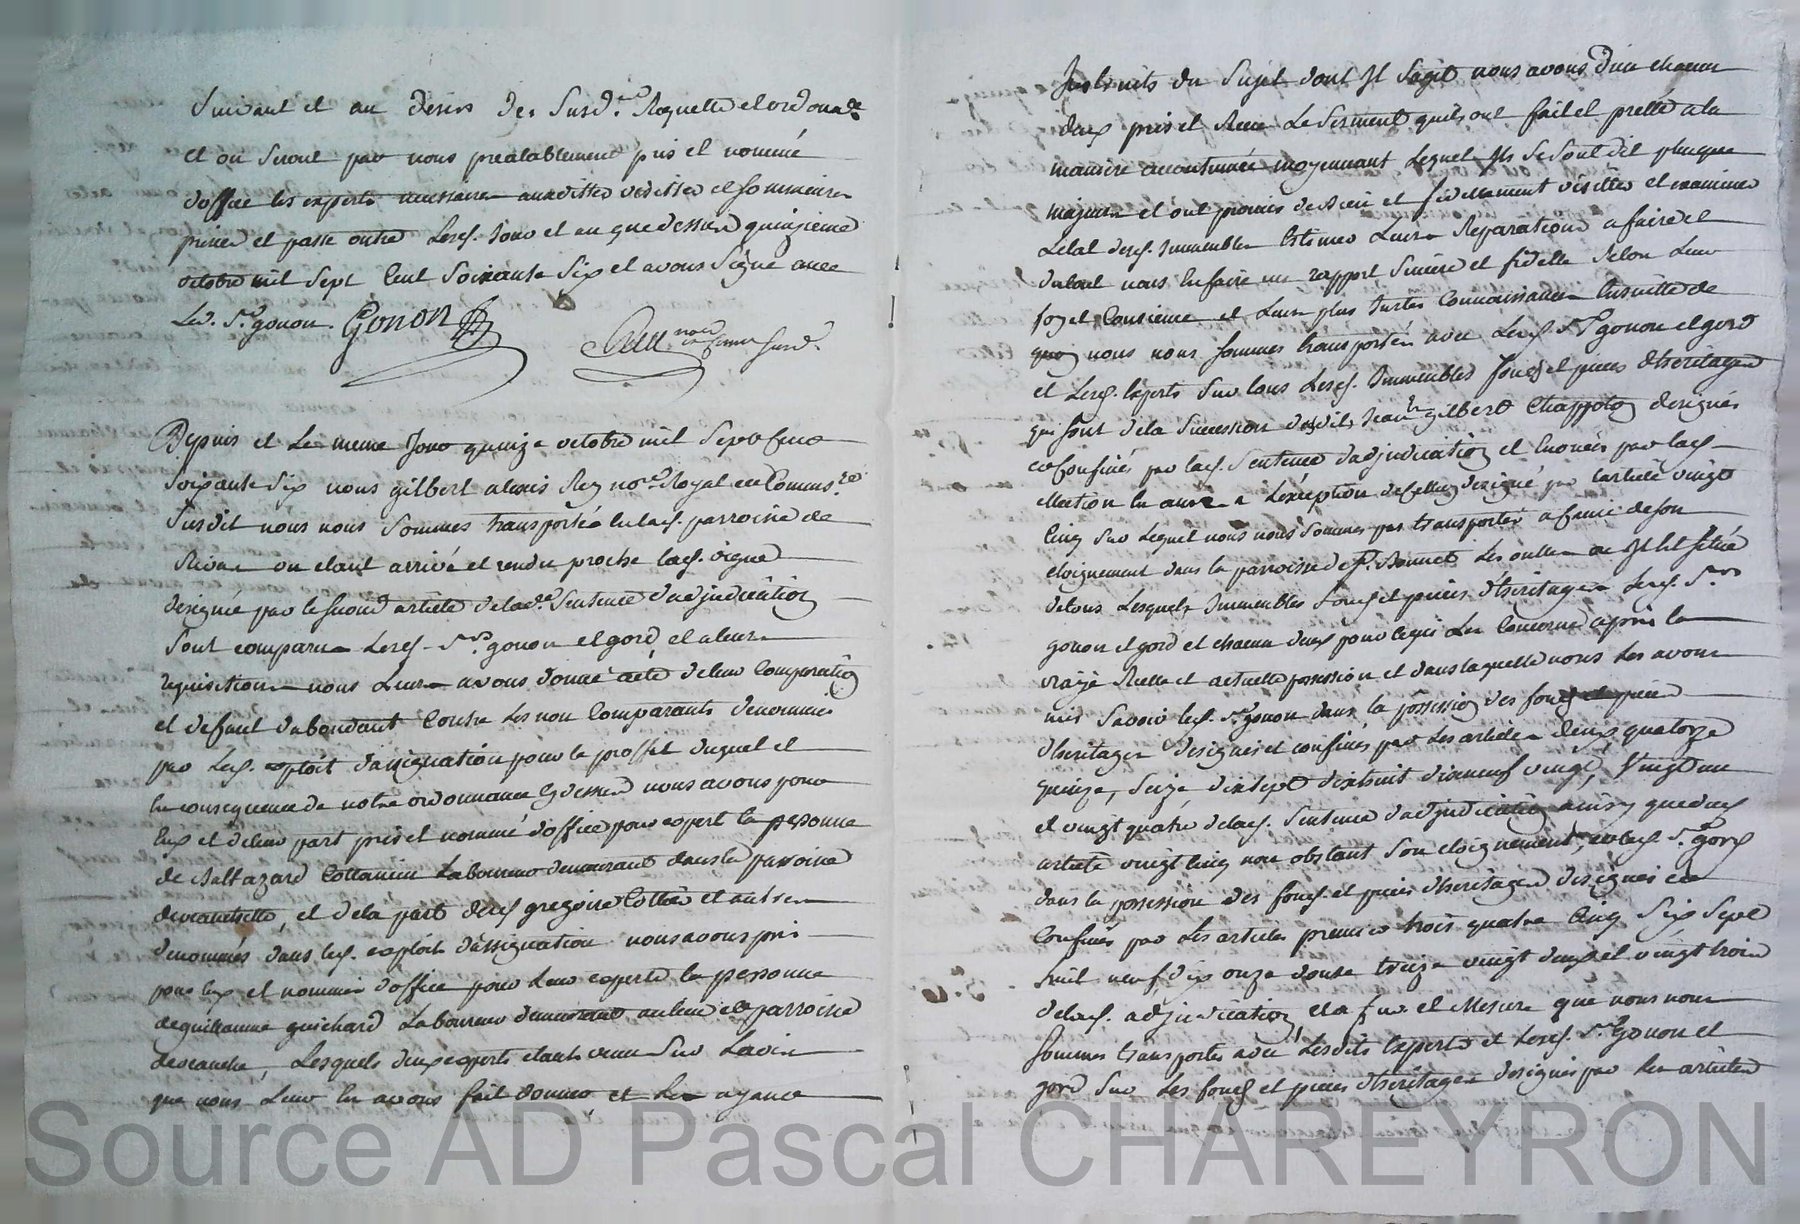 Suivant et au desir des Susd.tes Requette et ordona.ce
et ou Seront par nous prealablement pris et nommé
d'office les experts necessaires auxdittes visittes et sommaires
prisée et passé outre Lesd. Jour et an que dessus quinzieme
octobre mil Sept Cent Soixante Six et avons Signé avec
Led. Sr gonon. Gonon
Depuis et Le meme Jour quinze octobre mil Sept Cent
Soixante Six nous gilbert alexis Rey nore Royal et Commis.re
Susdit nous nous Sommes transportés en lad. parroisse de
ou etant arrivé et rendu proche lad. vigne
designée par le second article de lad.e Sentence d'adjudication
Sont comparus Lesd. Srs gonon et gord, et a leurs
requisitions nous Leurs avons donné acte de leur Comparution
et defaut d'abondant Contre Les non Comparants denommés
par Led. exploit d'assignation pour le proffit duquel et
en consequence de notre ordonnance cy dessus nous avons pour
Eux et de leur part pris et nommé d'office pour expert la personne
de Baltazard Laboureur demeurant dans la parroisse
et de la part desd. gregoire Cottier et autres
denommés dans led. exploit d'assignation nous avons pris
pour Eux et nommé d'office pour Leur experts la personne
de guillaume guichard Laboureur demeurant au lieu et parroisse
Lesquels deux experts etants venu Sur Lavis
que nous Leur en avons fait donner et Les ayants
Instruits du Sujet dont Il Sagit nous avons d'un chacun
deux pris et Receu Le Serment quils ont fait et presté a la
maniere accoutumée moyennant Lequel Ils Se Sont dit plusque
majeurs et ont promis de bien et fidellement visitter et examiner
Letat desd. Immeubles Estimer Leurs Reparations a faire et
du tout nous En faire un rapport Sincere et fidelle Selon Leur
foy et Consience et Leurs plus Justes Connoissances Ensuitte de
quoy nous nous sommes transportés avec Lesd. Srs gonon et gord
et Lesd. Experts Sur tous Lesd. Immeubles fonds et pieces d'heritages
qui Sont de la Succession dudit Jean gilbert Chappolon designés
et Confinés par lad. Sentence d'adjudication et Enoncés par lad.
Election en autre a L'exception de celluy designé par Larticle vingt
Cinq Sur Lequel nous nous Sommes pas transportés a cause de son
eloignement dans la parroisse de St. Bonnet Les oulles ou Il Est situé
de tous Lesquels Immeubles fonds et pieces d'heritages Lesd. Srs
gonon et gord et chacun deux pour ce qui Les Concerne apris la
vraye Reelle et actuelle possession et dans laquelle nous Les avons
mis Savoir led. Sr gonon dans la possession des fonds et pieces
d'heritages designés et confinés par Les articles deux quatorze
quinze, Seize dixsept dixhuit dixneuf vingt, Vingt un
et vingt quatre de lad. Sentence d'adjudication ainsy que dud.
article vingt Cinq non obstant Son eloignement, et led. Sr gord
dans la possession des fonds et pieces d'heritages designés et
Confinés par Les articles premier trois quatre Cinq Six Sept
huit neuf dix onze douse treize vingt deux et vingt trois
de lad. adjudication et a fur et Mesure que nous nous
Sommes transportés avec Lesdits Experts et Lesd. Srs Gonon et
gord Sur Les fonds et pieces d'heritages designés par Les articles
Source AD Pascal CHAREYRON